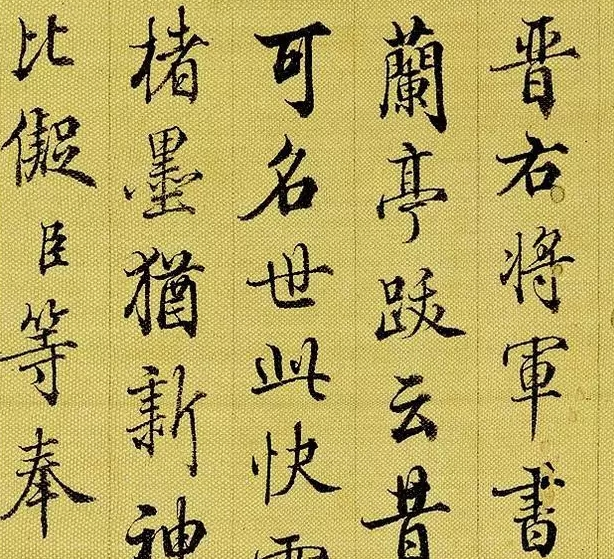 晋右将軍書
蘭亭跋云昔
可名世此快
楮墨猶新神
比儗臣等奉